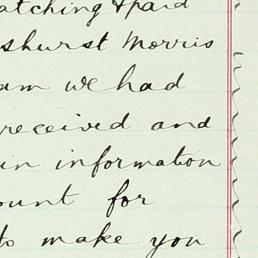 atching & paid
shurst Morris
am we had
received and
in information
ount for
to make you